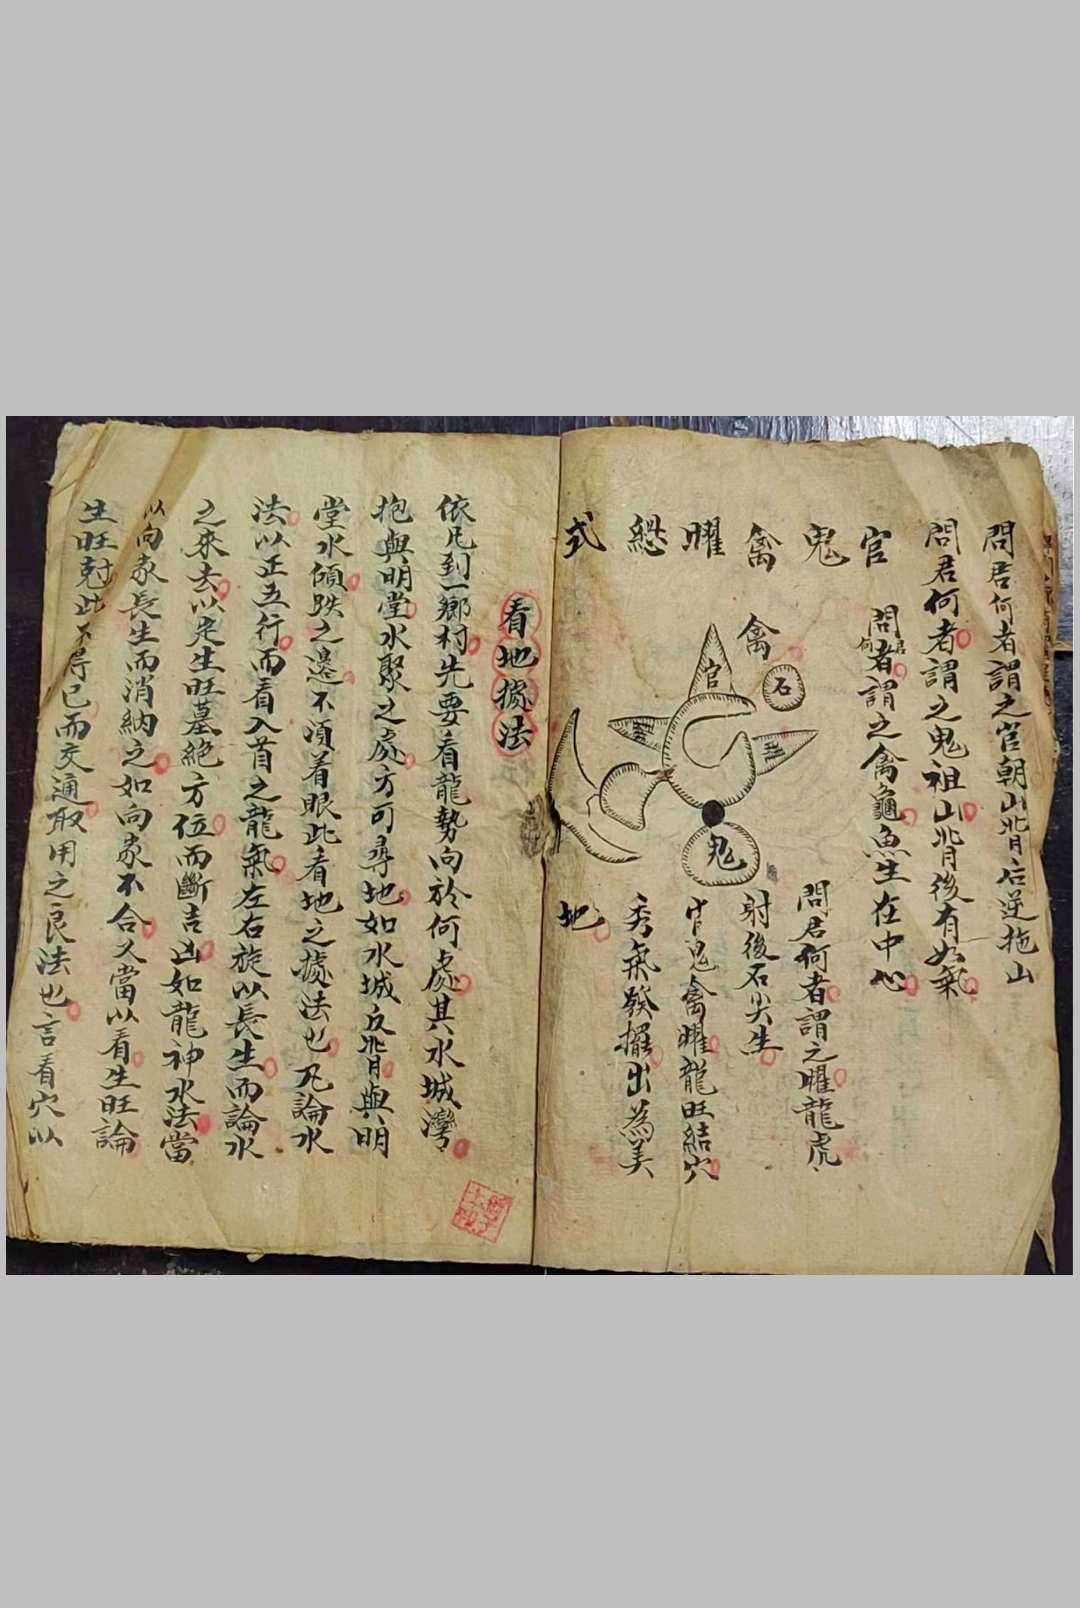 問君何者謂之官朝山背后逆拖山
問君何者謂之鬼祖山背後有如氣
官鬼禽曜総式
問君何者謂之禽龜魚生在中心
問君何者謂之曜龍虎
射後石尖生
官鬼禽曜龍旺結穴
秀氣發擺出為美
地
禽
石
官
鬼
看地據法
依凡到一鄉村先要看龍勢向於何處其水城灣
抱與明堂水聚之處方可尋地如水城反背與明
堂水傾跌之邊不須着眼此看地之據法也凡論水
法以正五行而看入首之龍氣左右旋以長生而論水
之來去以定生旺墓絕方位而斷吉凶如龍神水法當
以向家長生而消納之如向家不合又當以看生旺論
生旺尅此不得已而交通取用之良法也言看穴以